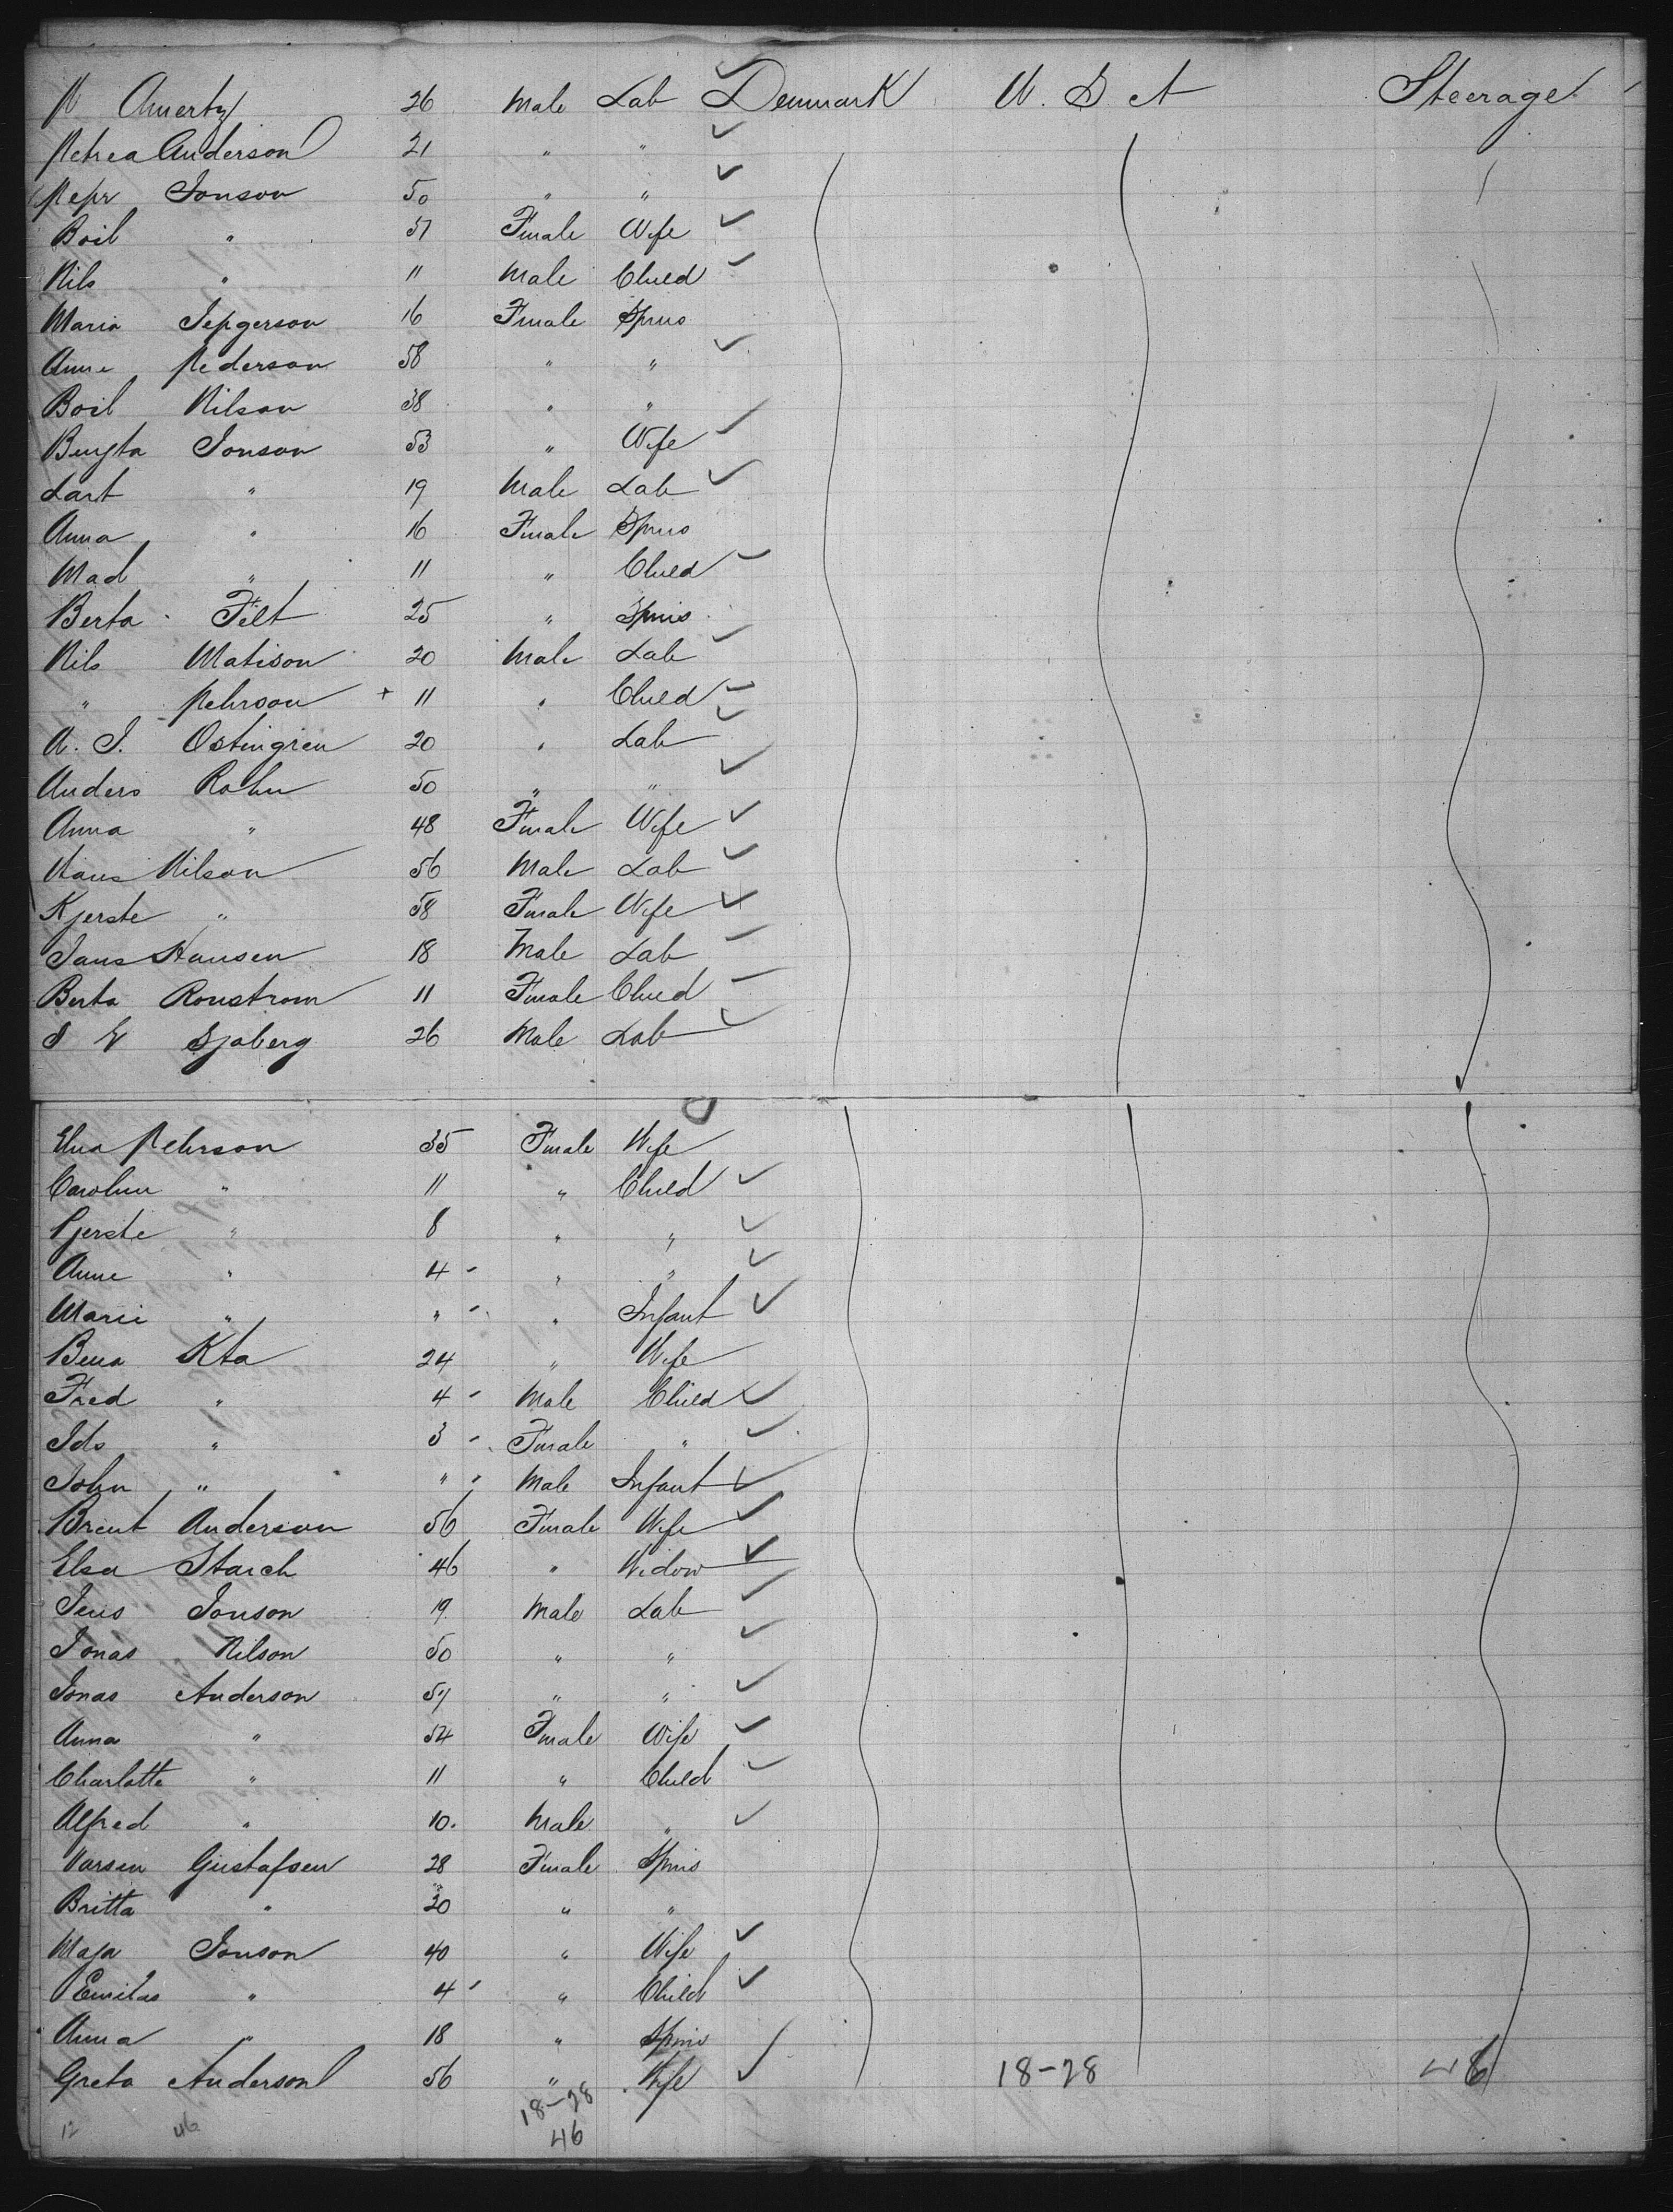 P Amerty 26 Male Lab Denmark U. S. A Steerage
Petrea Anderson 21 " "
Pepr Jonson 50 " "
Boil " 57 Female Wife
Nils " 11 Male Child
Maria Jepgerson 16 Female Spins
Anne Pederson 58 " "
Boil Nilson 38 " "
Bengta Jonson 53 " Wife
Lart " 19 Male Lab
Anna " 16 Female Spins
Mad " 11 " Child
Berta Filt 25 " Spins
Nils Matison 20 Male Lab
" Pehrson + 11 " Child
A. J. Ostingren 20 " Lab
Anders Rohn 50 " "
Anna " 48 Female Wife
Hans Nilson 56 Male Lab
Kjerste " 58 Female Wife
Jans Hansen 18 Male Lab
Berta Ronstrom 11 Female Child
Sjoberg 26 Male Lab
Elna Pehrson 35 Female Wife
Carolina " 11 " Child
Pjerste " 8 " "
Anne " 4 " "
Marie " " " Infant
Bena Kta 24 " Wife
Fred " 4 Male Child
Ida " 3 Female "
John " " Male Infant
Brent Anderson 56 Female Wife
Elsa Starch 46 " Widow
Jens Jonson 19 Male Lab
Jonas Nilson 50 " "
Jonas Anderson 57 " "
Anna " 54 Female Wife
Charlotte " 11 " Child
Alfred " 10. Male "
Gustafsen 28 Female Spins
Britta " 20 " "
Maja Jonson 40 " Wife
Emilas " 4 " Child
Anna " 18 " Spins
Greta Anderson 56 " Wife 18-28 46
12 46 18-28
46